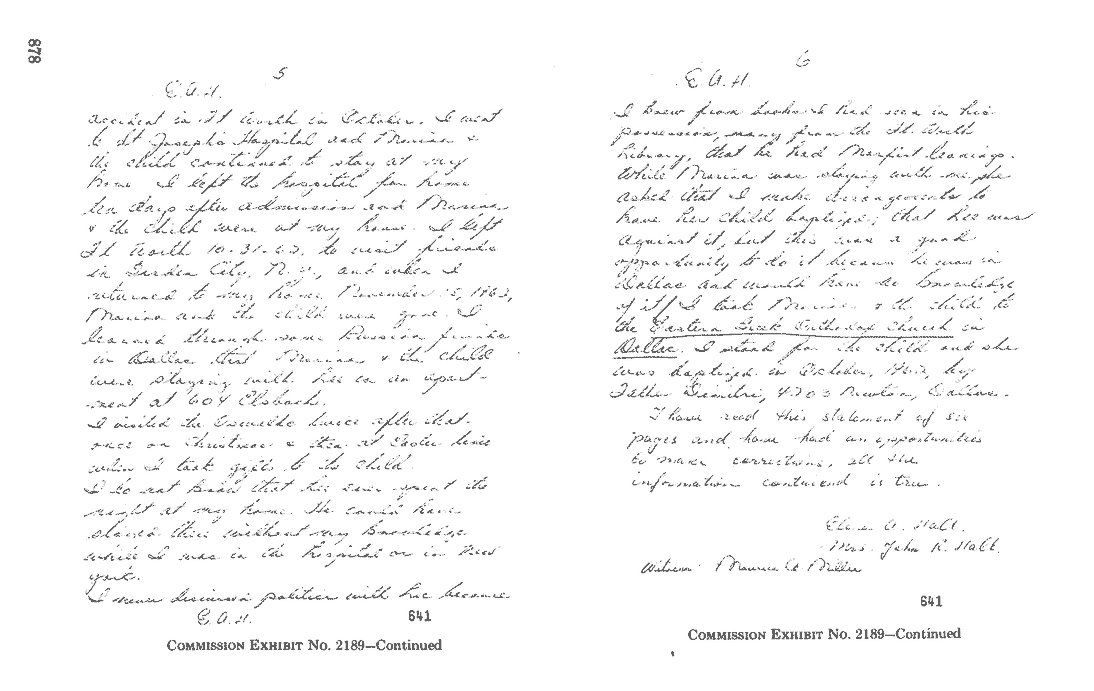 878
5
E.A.H.
accident in Ft Worth in October. I went
to St Josephs Hospital and Marina &
the child continued to stay at my
home. I left the hospital for home
ten days after admission and Marina
& the child were at my house. I left
Ft Worth 10-31-62, to visit friends
in Garden City, N.Y., and when I
returned to my home November 15, 1962,
Marina and the child were gone. I
learned through some Russian friends
in Dallas that Marina & the child
were staying with Lee in an apart-
ment at 604 Elsbach.
I visited the Oswalds twice after that.
once on Christmas & then at Easter time
when I took gifts to the child.
I do not know that Lee ever spent the
night at my home. He could have
stayed there without my knowledge
while I was in the hospital or in New
York.
I never discussed politics with him because
E.A.H.
641
COMMISSION EXHIBIT No. 2189—Continued
6
E.A.H.
I knew from books I had seen in his
possession, many from the Ft. Worth
Library, that he had Marxist leanings.
While Marina was staying with me she
asked that I make arrangements to
have her child baptized; that Lee was
against it, but this was a good
opportunity to do it because he was in
Dallas and would have no knowledge
of it. I took Marina & the child to
the Eastern Greek Orthodox Church in
Dallas. I stood for the child and she
was baptized in October, 1962, by
Father Dimitri, 4203 Newton, Dallas.
I have read this statement of six
pages and have had an opportunities
to make corrections, all the
information contained is true.
Elena A. Hall.
Mrs. John R. Hall.
Witness: Maurice A. Miller
641
COMMISSION EXHIBIT No. 2189—Continued